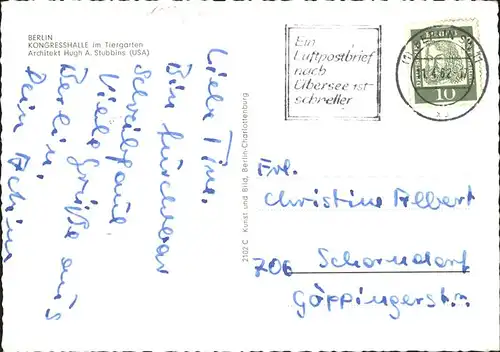 BERLIN
KONGRESSHALLE im Tiergarten
Architekt Hugh A. Stubbins (USA)
Liebe Tine.
Bin furchtbar
schreibfaul.
Viele Grüße aus
Berlin
Dein Achim
2102 C Kunst und Bild, Berlin-Charlottenburg
Ein
Luftpostbrief
nach
Übersee ist
schneller
10
Frl.
Christine Albert
706 Schorndorf
Göppingerstr.